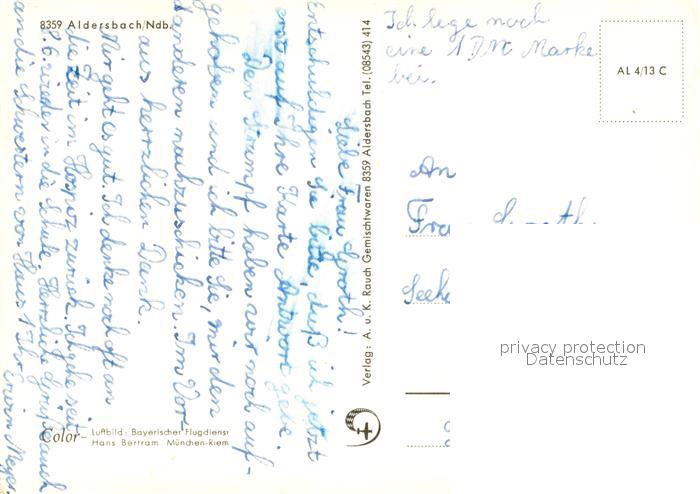 8359 Aldersbach/Ndb.
Liebe Frau Groth!
Entschuldigen Sie bitte, daß ich jetzt
erst auf Ihre Karte Antwort gebe.
Den Strumpf haben wir noch auf-
gehoben und ich bitte Sie, mir den
anderen nachzuschicken. Im Vor-
aus herzlichen Dank.
Mir geht es gut. Ich denke noch oft an
die Zeit im Hospiz zurück. Ich gehe seit
8.6. wieder in die Schule. Herzliche Grüße auch
an die Schwestern von Haus 1 Ihr
Erwin Meyer.
Color- Luftbild: Bayerischer Flugdienst
Hans Bertram München-Riem
Verlag: A. u. K. Rauch Gemischtwaren 8359 Aldersbach Tel. (08543) 414
Ich lege noch
eine 1 DM Marke
bei.
AL 4/13 C
An
privacy protection
Datenschutz